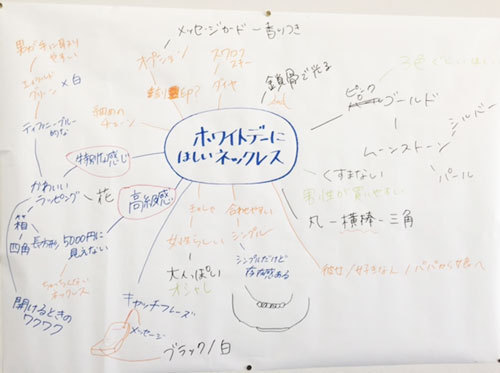 メッセージカード ー 香りつき
オプション
スワロフ
スキー
ダイヤ
鎖骨で光る
細めの
チェーン
男が手に取り
やすい
エメラルド
グリーン × 白
ティファニーブルー
的な
特別な感じ
かわいい
ラッピング
花
箱
四角
長方形
開けるときの
ワクワク
高級感
5000円に
見えない
ちゃっちくない
ネックレス
ホワイトデーに
ほしいネックレス
ピンク
ゴールド
ムーンストーン
シルバー
パール
くすまない
男性が買いやすい
丸 ー 横棒 ー 三角
彼女/好きな人/パパから娘へ
合わせやすい
シンプル
シンプルだけど
存在感ある
きゃしゃ
女性らしい
大人っぽい
オシャレ
キャッチフレーズ
メッセージ
ブラック/白